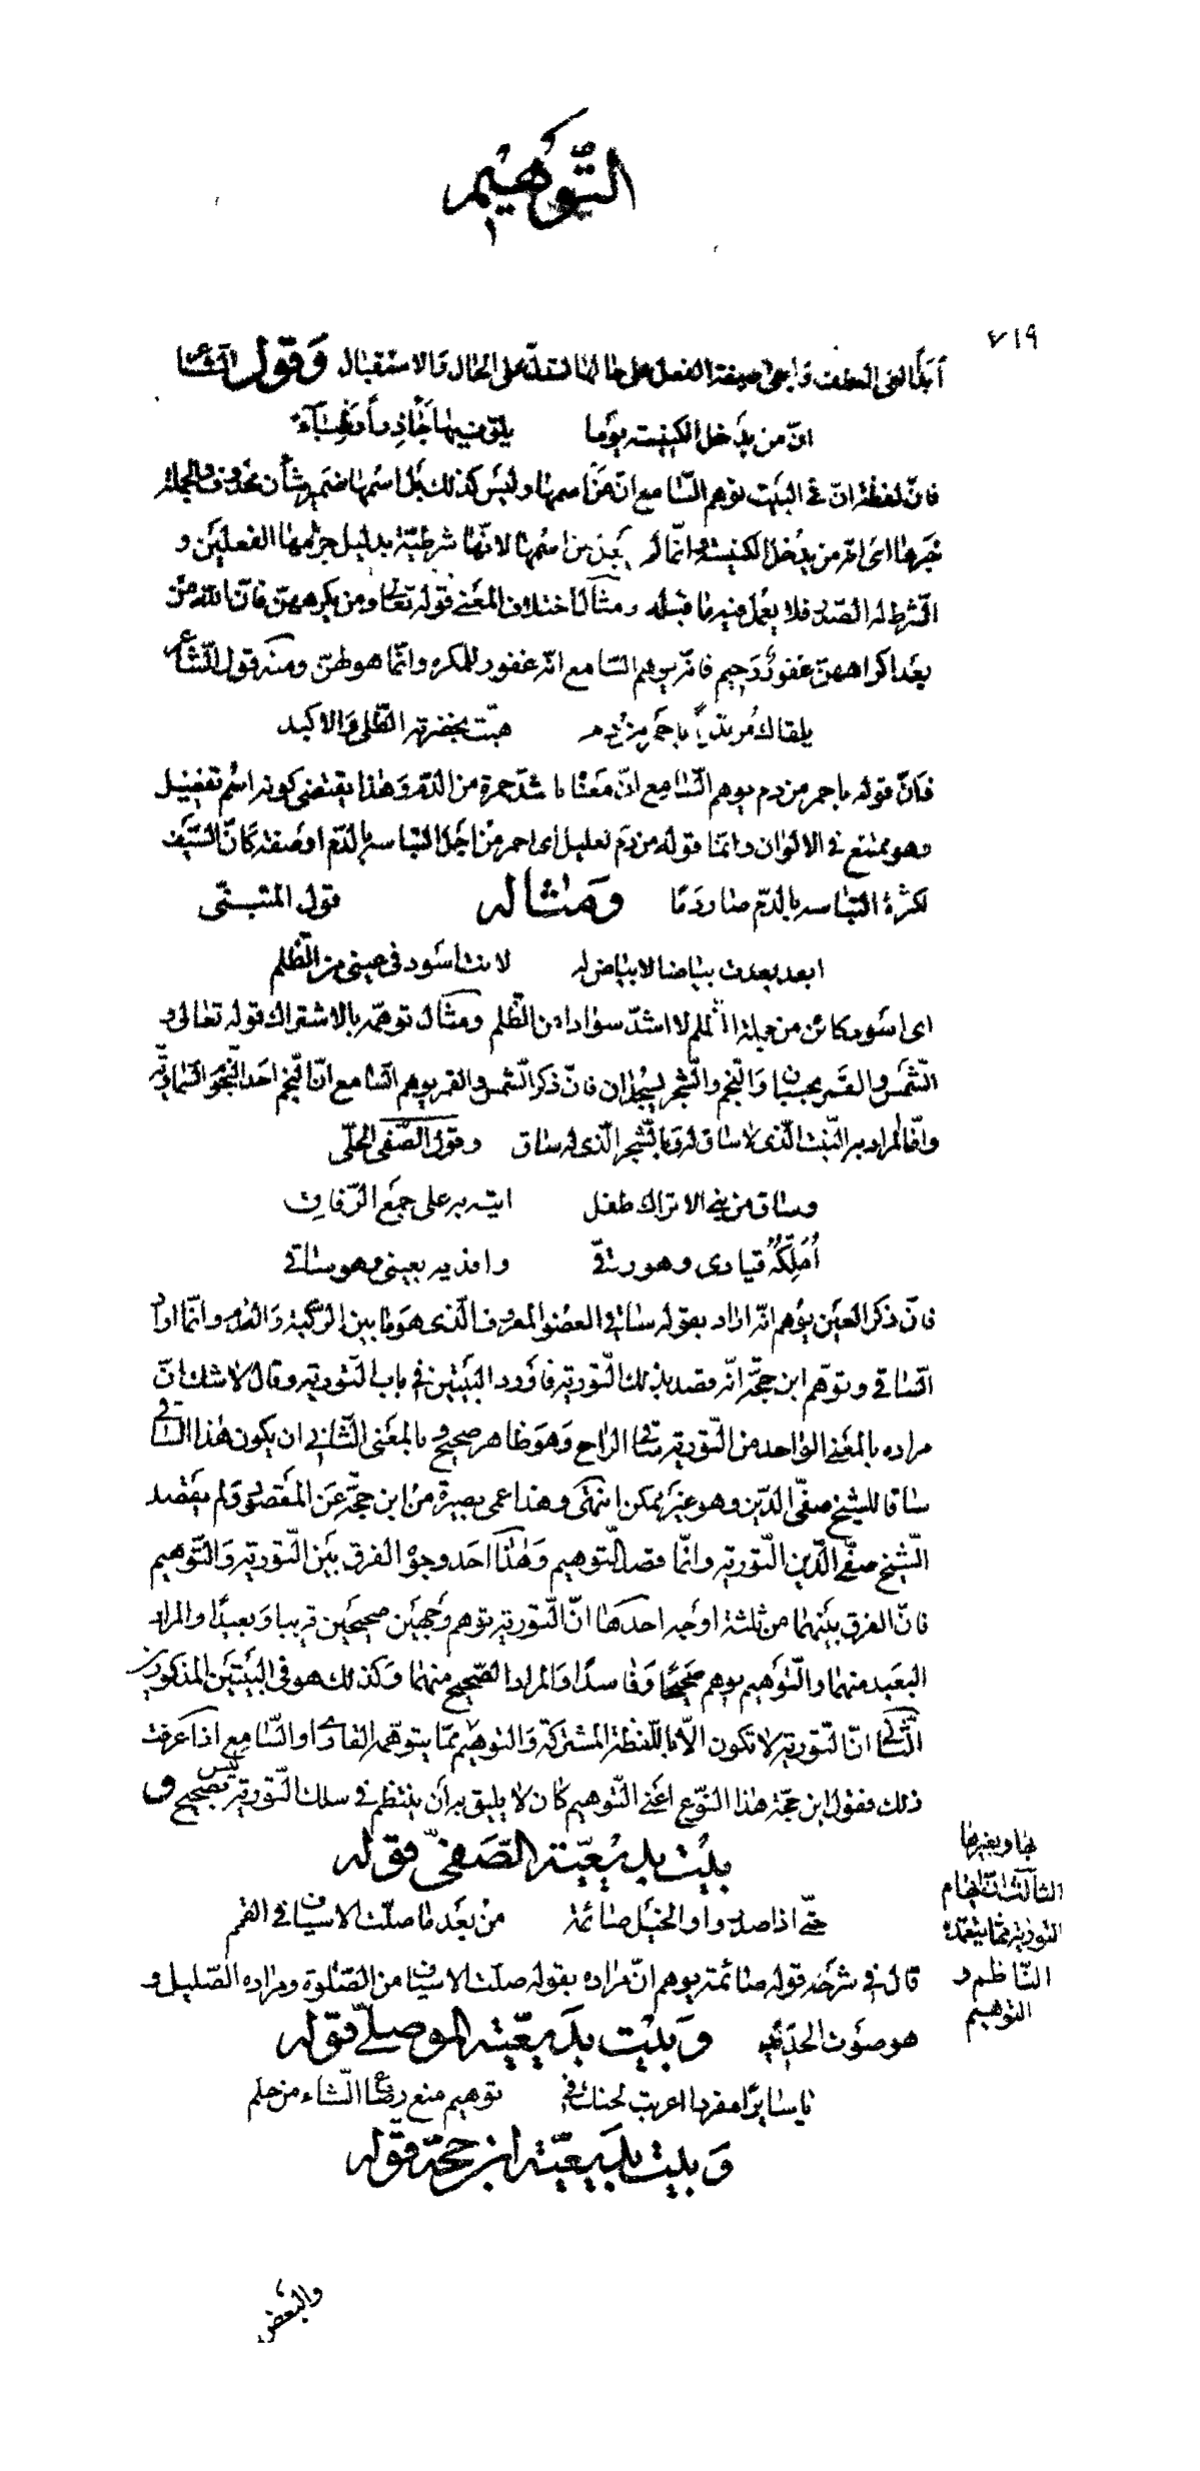 التّوهيم
٧١٩
أبدًا الى العطف وابقى صيغة الفعل على حالها لتدلّ على الحال والاستقبال وَقول الشاعر
انّ من يدخل الكنيسة يومًا يلق فيها جآذرًا وظباءً
فانّ لفظة انّ فى البيت توهم السّامع انّ من اسمها وليس كذلك بل اسمها ضمير شأن محذوف والجملة
خبرها اى انه من يدخل الكنيسة وانّما لم يجز من اسمها لانّها شرطيّة بدليل جزمها الفعلين و
الشّرط له الصّدر فلا يعمل فيه ما قبله ومثال اختلاف المعنى قوله تعالى ومن يكرههنّ فانّ الله من
بعد اكراههنّ غفورٌ رحيم فانّه يوهم السّامع انّه غفور للمكره وانّما هو لهنّ ومنه قول الشّاعر
يلقاك مرتديًا باحمر من دم ذهبت بخضرته الطّلى والاكبد
فانّ قوله باحمر من دم يوهم السّامع انّ معناه باشدّ حمرة من الدّم وهذا يقتضى كونه اسم تفضيل
وهو ممتنع فى الالوان وانّما قوله من دم تعليل اى احمر من اجل التباسه بالدّم او صفة كانّ السّيف
لكثرة التباسه بالدّم صار دمًا ومثاله قول المتنبّى
ابعد بعدت بياضا لا بياض له لانت اسود فى عينى من الظّلم
اى اسود كائن من جملة الظلم لا اشدّ سوادا من الظّلم ومثال توهّمه بالاشتراك قوله تعالى
الشّمس والقمر بحسبان والنّجم والشّجر يسجدان فانّ ذكر الشّمس والقمر يوهم السّامع انّ النّجم احد النّجوم السّماويّة
وانّما المراد به النّبت الّذى لا ساق له وبالشّجر الّذى له ساق وقول الصّفى الحلّى
وساق من بنى الاتراك طفل اتيه به على جمع الرّفاق
اُملّكه قيادى وهو رقّى وافديه بعينى وهو ساقى
فانّ ذكر العين يوهم انّه اراد بقوله ساقى العضو المعروف الّذى هو ما بين الركبة والقدم وانّما اراد
السّاقى وتوهّم ابن حجّة انّه قصد بذلك التّورية فاورد البيتين فى باب التّورية وقال لا شك انّ
مراده بالمعنى الواحد من التّورية ساقى الراح وهو ظاهر صحيح وبالمعنى الثّانى ان يكون هذا السّاقى
ساقا للشيخ صفّى الدّين وهو غير ممكن انتهى وهذا عمى بصيرة من ابن حجّة عن المقصود ولم يقصد
الشّيخ صفّى الدّين التّورية وانّما قصد التّوهيم وهذا احد وجوه الفرق بين التّورية والتّوهيم
فانّ الفرق بينهما من ثلثة اوجه احدها انّ التّورية توهم وجهين صحيحين قريبا وبعيدًا والمراد
البعيد منهما والتّوهيم يوهم صحيحًا وفاسدًا والمراد الصّحيح منهما وكذلك هو فى البيتين المذكورين
الثّانى انّ التّورية لا تكون الّا باللّفظة المشتركة والتوهيم بها وبغيرها الثّالث انّ ايهام التورية ممّا يتعمّده النّاظم والتوهيم ممّا يتوهّمه القارى او السّامع اذا عرفت
ذلك فقول ابن حجّة هذا النّوع اعنى التّوهيم كان لا يليق به ان ينتظم فى سلك التّورية ليس بصحيح و
بيت بديعيّة الصّفى قوله
حتّى اذا صدروا والخيل صائمة من بعد ما صلّت الاسياف فى القمم
قال فى شرحه قوله صائمة يوهم انّ مراده بقوله صلّت الاسياف من الصّلوة ومراده الصّليل و
هو صوت الحديد وَبيت بديعيّته الموصلّى قوله
يا سايرًا مفردا اعربت لحنك فى توهيم منع رضاع الشّاء من حلم
وَبيت بديعيّة ابن حجّة قوله
والبعض